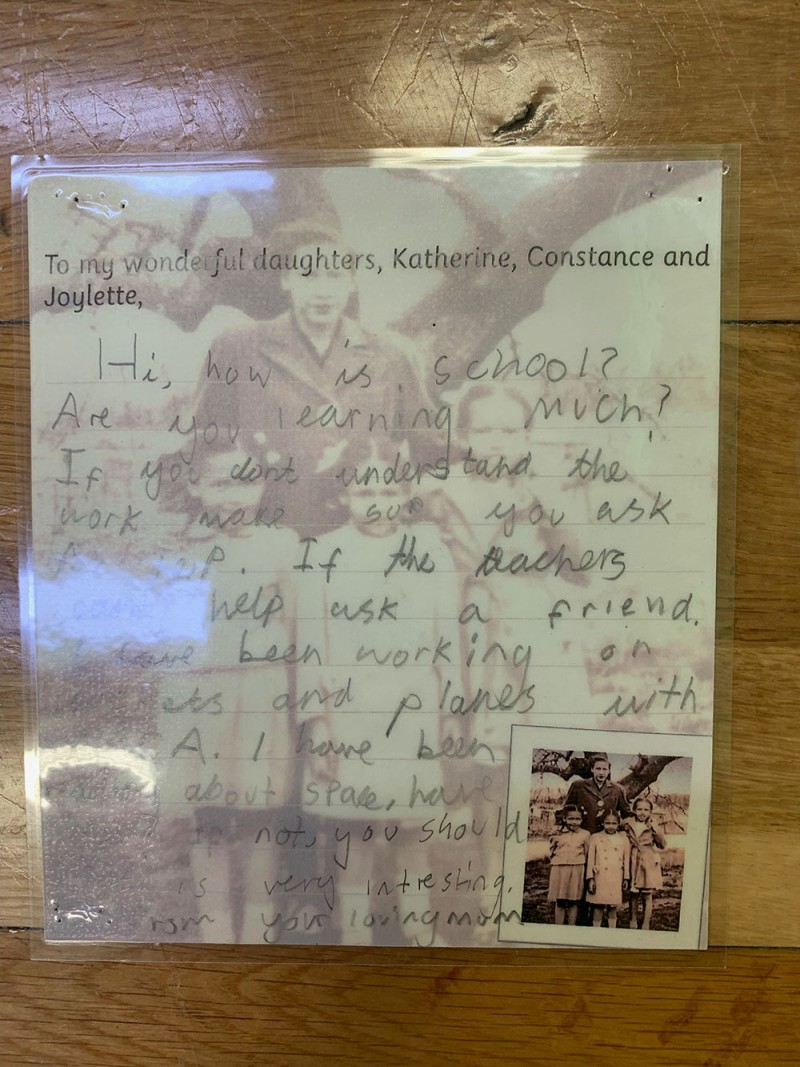 To my wonderful daughters, Katherine, Constance and
Joylette,
Hi, how is school?
Are you learning much?
If you dont understand the
work make sur you ask
If the teachers
help ask a friend.
have been working on
and planes with
A. I have been
about space, have
If not, you should
is very intresting.
your loving mom